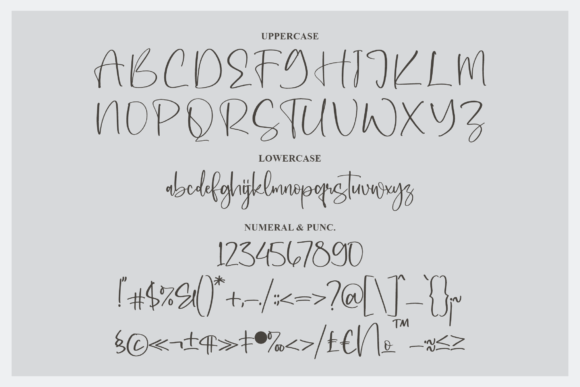 UPPERCASE
ABCDEFGHIJKLM
NOPQRSTUVWXYZ
LOWERCASE
abcdefghijklmnopqrstuvwxyz
NUMERAL & PUNC.
1234567890
!"#$%&()*+,-./:;<=>?@[\]^_`{}¡~